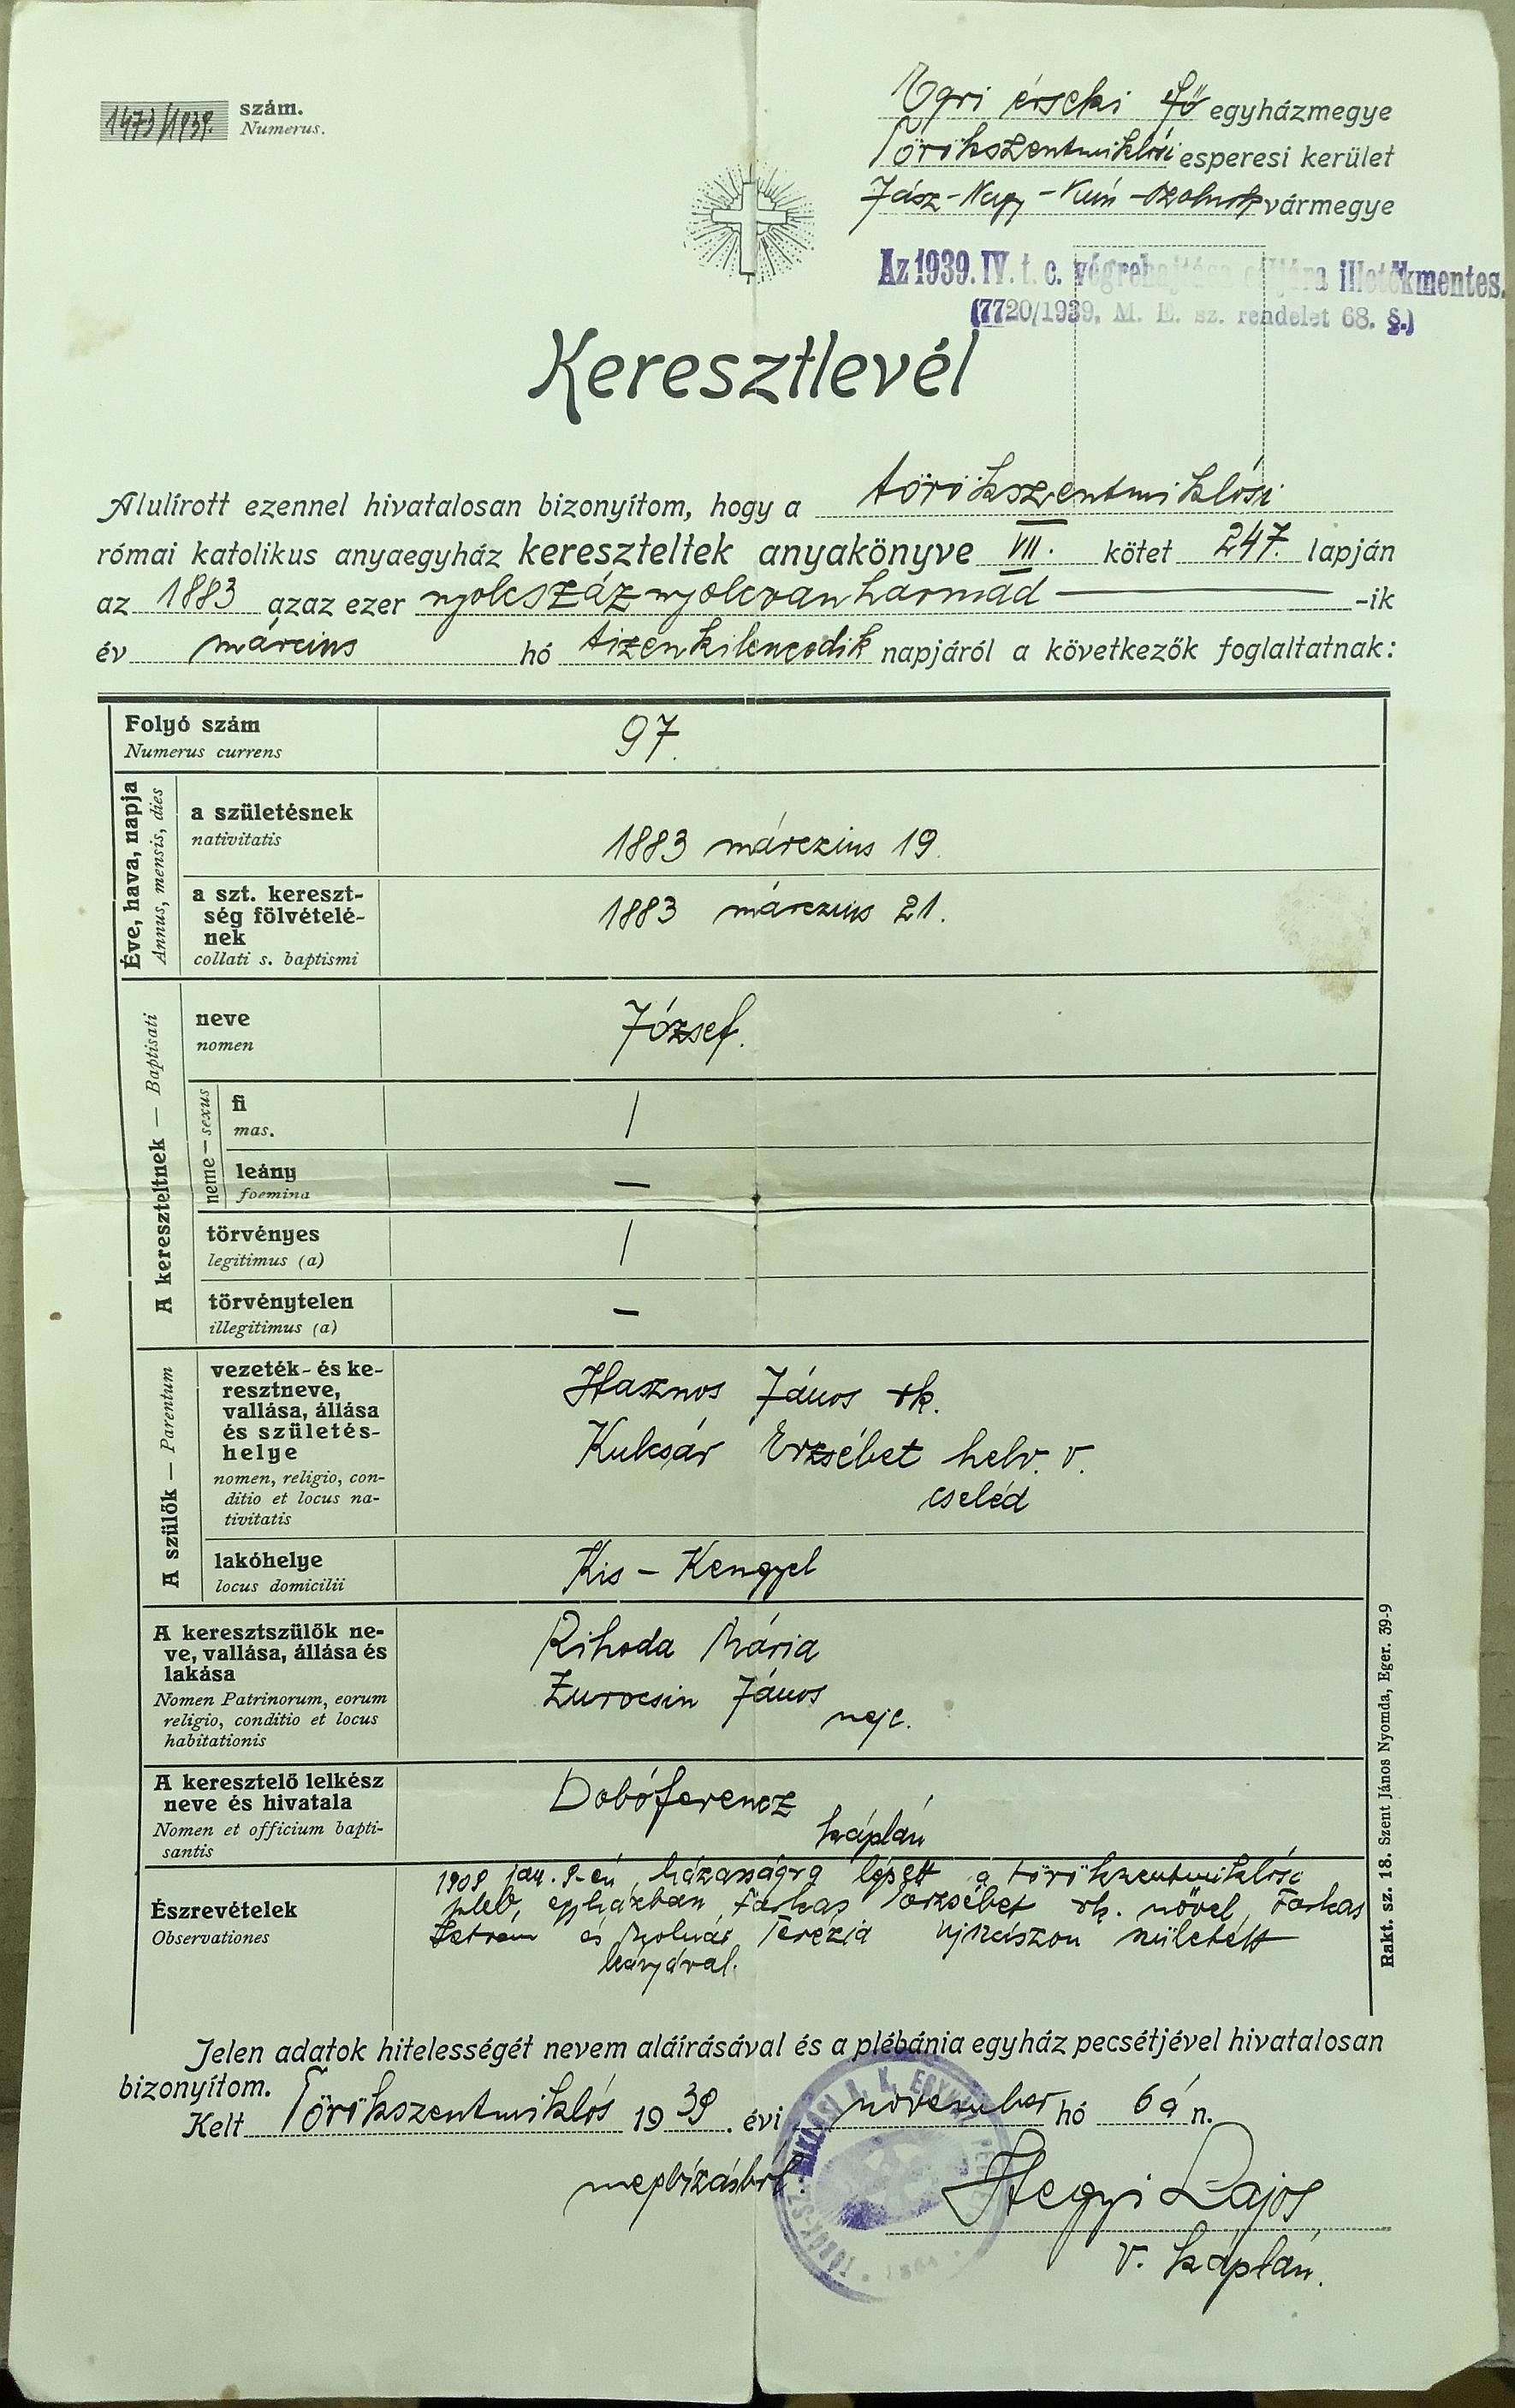 1473/1939. szám.
Numerus.
Egri érseki fő egyházmegye
Törökszentmiklósi esperesi kerület
Jász-Nagy-Kún-Szolnok vármegye
Az 1939. IV. t. c. végrehajtása céljára illetékmentes.
(7720/1939, M. E. sz. rendelet 68. §.)
Keresztlevél
Alulírott ezennel hivatalosan bizonyítom, hogy a törökszentmiklósi
római katolikus anyaegyház kereszteltek anyakönyve VII. kötet 247. lapján
az 1883 azaz ezer nyolcszáznyolcvanharmad -ik
év március hó tizenkilencedik napjáról a következők foglaltatnak:
Folyó szám 97.
Numerus currens
Éve, hava, napja
Annus, mensis, dies
a születésnek
nativitatis
1883 márczius 19.
a szt. kereszt-
ség fölvételé-
nek
collati s. baptismi
1883 márczius 21.
A kereszteltnek — Baptisati
neve
nomen
József.
neme — sexus
fi
mas.
/
leány
foemina
—
törvényes
legitimus (a)
/
törvénytelen
illegitimus (a)
—
A szülők — Parentum
vezeték- és ke-
resztneve,
vallása, állása
és születés-
helye
nomen, religio, con-
ditio et locus na-
tivitatis
Hasznos János rk.
Kulcsár Erzsébet helv. v.
cseléd
lakóhelye
locus domicilii
Kis-Kengyel
A keresztszülők ne-
ve, vallása, állása és
lakása
Nomen Patrinorum, eorum
religio, conditio et locus
habitationis
Rihoda Mária
Zurocsin János
neje.
A keresztelő lelkész
neve és hivatala
Nomen et officium bapti-
santis
Dobóferencz
káplán
Észrevételek
Observationes
1908 jan. 9-én házasságra lépett a törökszentmiklósi
pleb. egyházban Farkas Erzsébet rk. nővel, Farkas
István és Molnár Terézia Ujszászon született
leányával.
Jelen adatok hitelességét nevem aláírásával és a plébánia egyház pecsétjével hivatalosan
bizonyítom.
Kelt Törökszentmiklós 1939. évi november hó 6 á n.
megbízásból:
Hegyi Lajos
v. káplán.
Rakt. sz. 18. Szent János Nyomda, Eger. 39-9